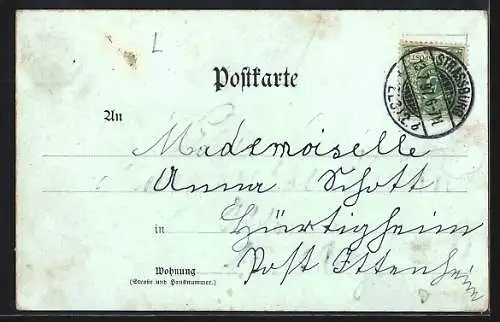 L
Postkarte
STRASSBURG
An
Mademoiselle
Anna Schott
in
Hürtigheim
Wohnung
Post Ittenheim
(Straße und Hausnummer.)